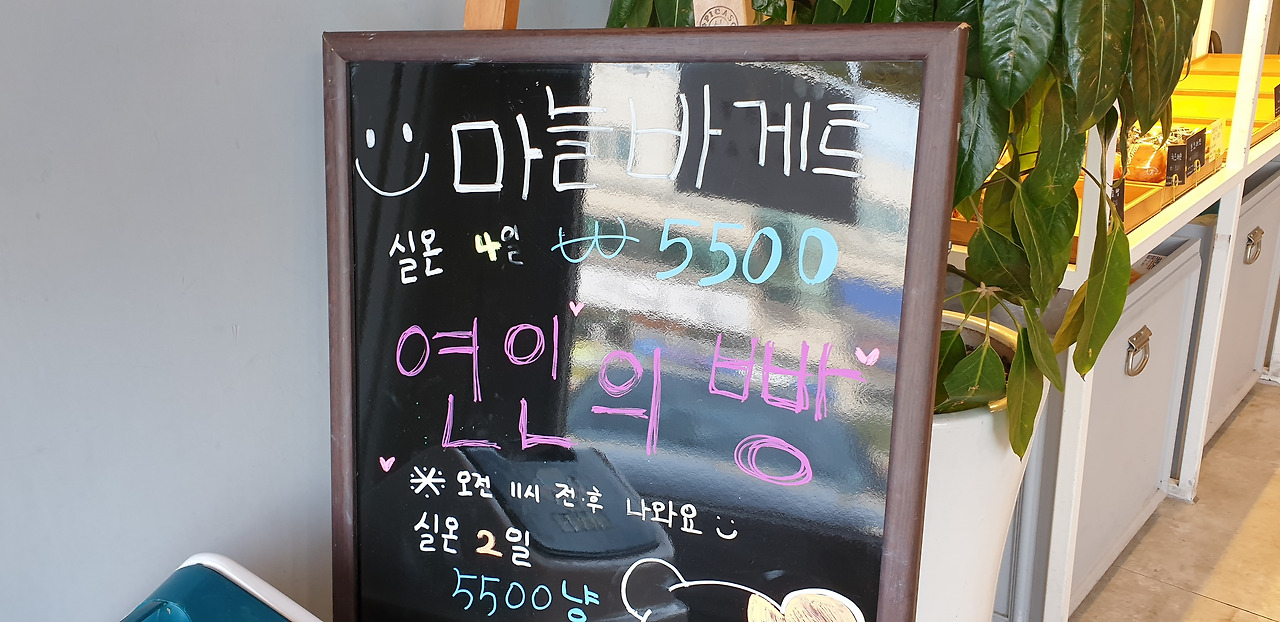 마늘바게트
실온 4일 ₩ 5500
연인의 빵
※ 오전 11시 전·후 나와요
실온 2일
5500냥